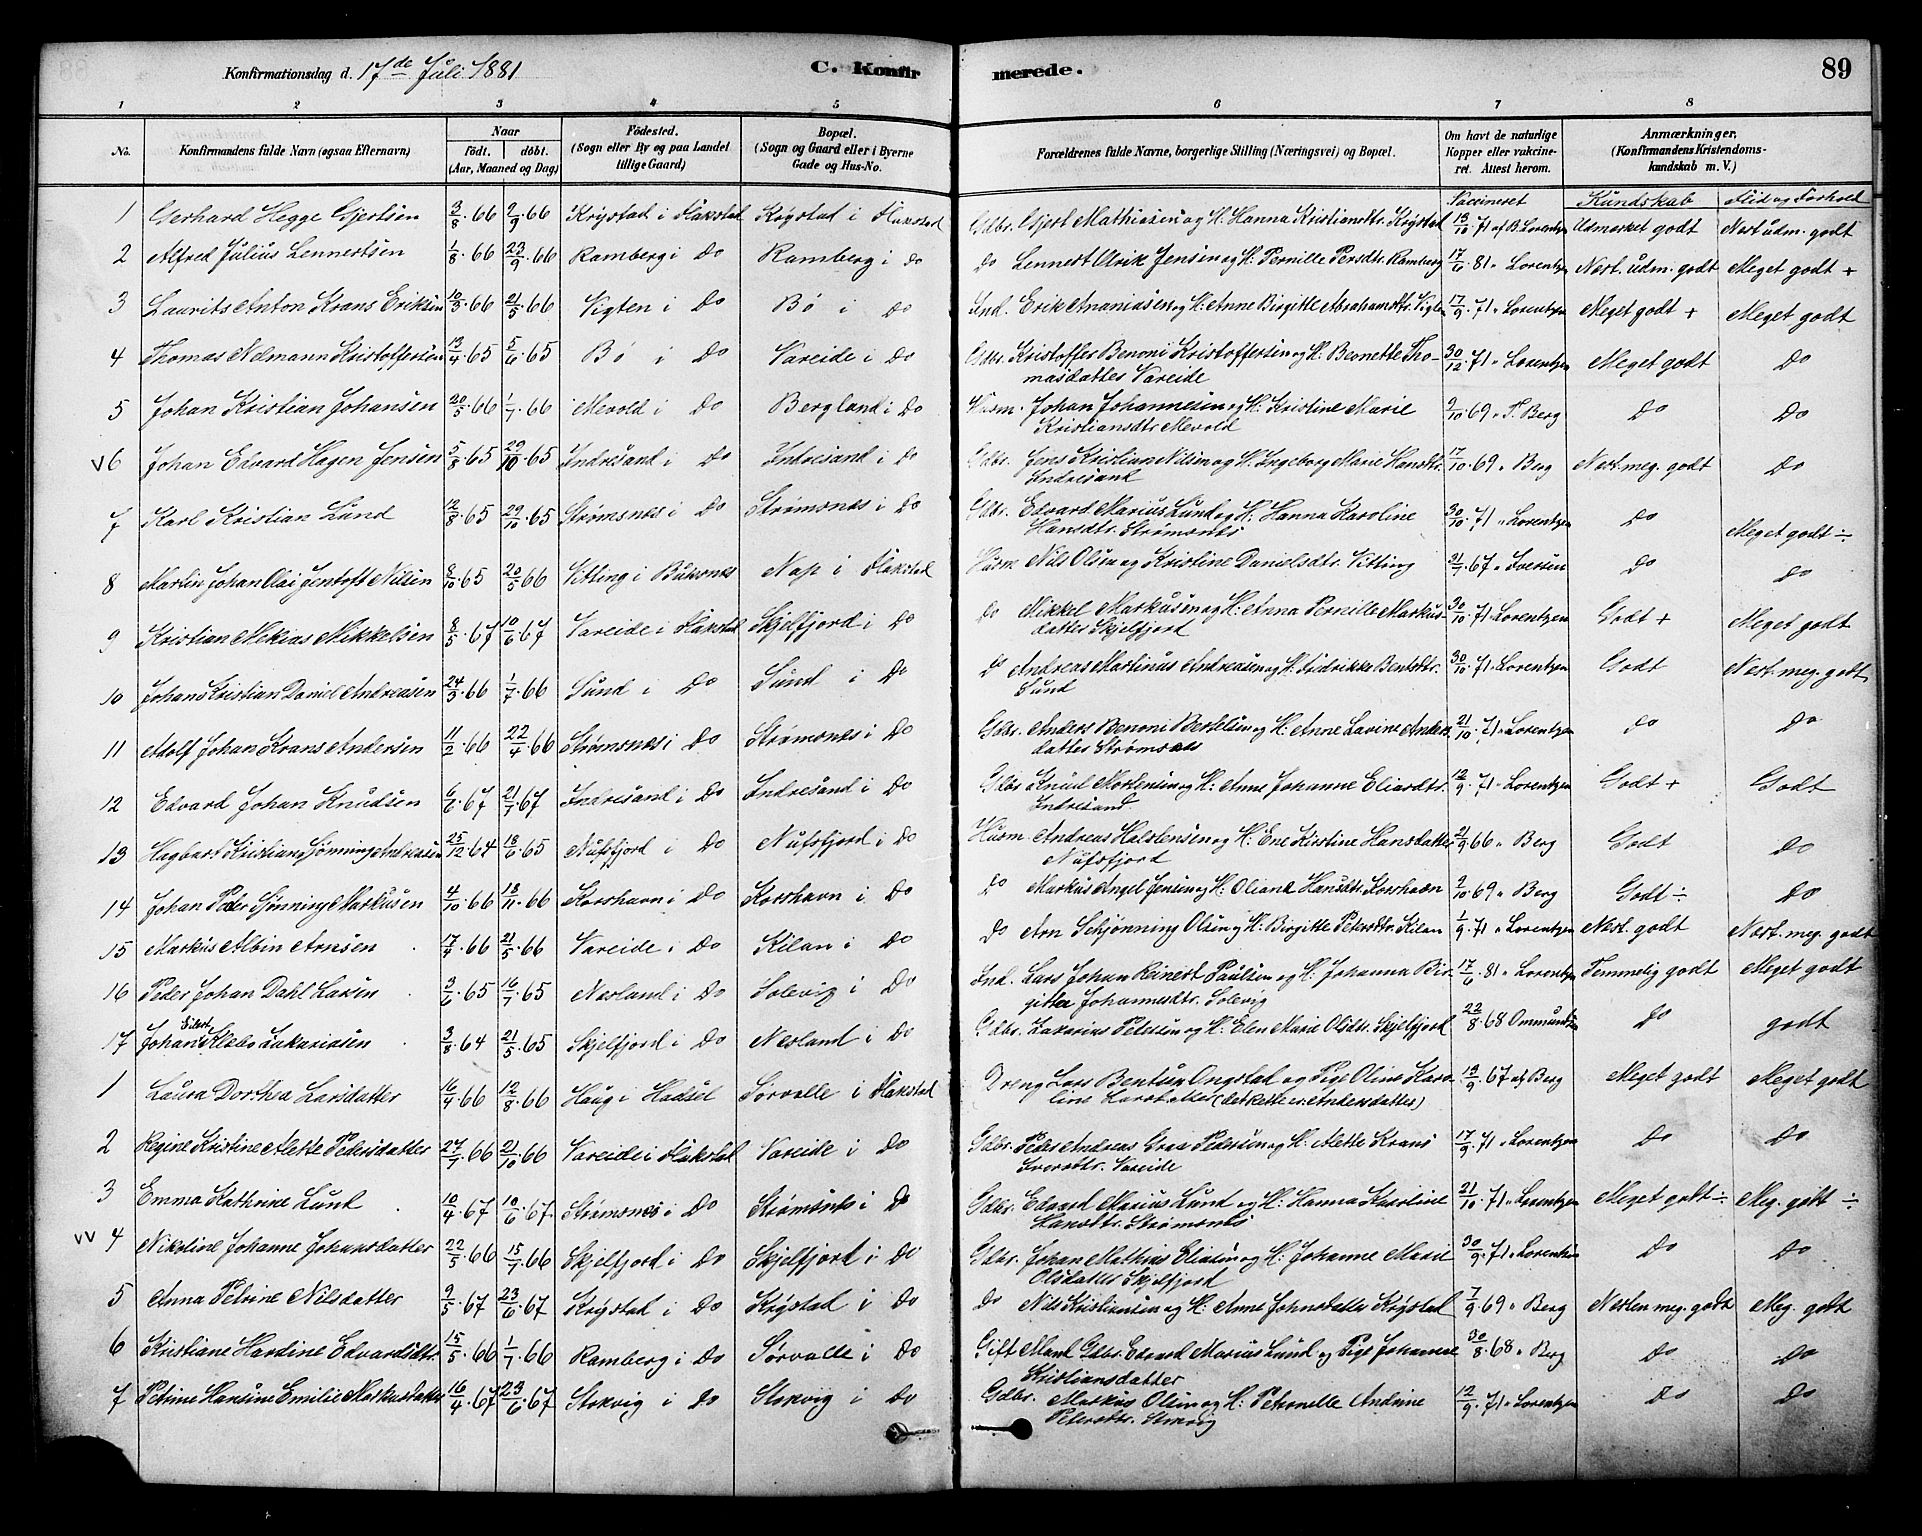 Konfirmationsdag d. 17de Juli 1881
C. Konfirmerede. 89
1 2 3 4 5 6 7 8
No. Konfirmandens fulde Navn (ogsaa Efternavn) Naar Födt. döbt. (Aar, Maaned og Dag) Födested. (Sogn eller By og paa Landet tillige Gaard) Bopæl. (Sogn og Gaard eller i Byerne Gade og Hus-No. Forældrenes fulde Navne, borgerlige Stilling (Næringsvei) og Bopæl. Om havt de naturlige Kopper eller vakcineret. Attest herom. Anmærkninger. (Konfirmandens Kristendomskundskab m. V.)
Vaccineret Kundskab Flid og Forhold
1 Gerhard Hegge Gjertsen 3/8.66 2/9.66 Krystad i Flakstad Krystad i Flakstad Gdbr. Gjert Mathiasen og H. Hanna Kristiansdtr. Krystad 13/10.71 af B. Lorentzen Udmerket godt Næst udm. godt
2 Alfred Julius Lennertsen 1/8.66 23/9.66 Ramberg i Do Ramberg i Do Do Lennert Ulrik Jensen og H. Pernille Persdtr. Ramberg 17/6.81 " Lorentzen Næst. udm. godt Meget godt +
3 Laurits Anton Krans Eriksen 10/3.66 21/5.66 Vigten i Do Bø i Do Ind. Erik Ananiasen og H. Anne Birgitte Abrahamsdtr. Vigten 17/9.71 " Lorentzen Meget godt + Meget godt
4 Thomas Nelmann Kristoffersen 13/4.65 5/6.65 Bø i Do Vareide i Do Gdbr. Kristoffer Benoni Kristoffersen og H. Bernette Thomasdatter Vareide 30/12.71 " Lorentzen Meget godt Do
5 Johan Kristian Johansen 20/5.66 1/7.66 Mevold i Do Bergland i Do Husm. Johan Johannesen og H. Kristine Marie Kristiansdtr. Mevold 9/10.69 " T. Berg Do Do
V6 Johan Edvard Hagen Jensen 5/8.65 29/10.65 Indresand i Do Indresand i Do Gdbr. Jens Kristian Nilsen og H. Ingeborg Marie Hansdtr. Indresand 17/10.69 " Berg Næst. meg. godt Do
7 Karl Kristian Lund 12/8.65 29/10.65 Strømsnes i Do Strømsnes i Do Gdbr. Edvard Marius Lund og H. Hanna Karoline Hansdtr. Strømsnes 30/10.71 " Lorentzen Do Meget godt ÷
8 Martin Johan Olai Jentoft Nilsen 8/10.65 20/5.66 Vitting i Buksnes Nap i Flakstad Husm Nils Olsen og Kristine Danielsdtr. Vitting 21/7.67 " Iversen Do Do
9 Kristian Mekias Mikkelsen 8/5.67 10/6.67 Vareide i Flakstad Skjelfjord i Do Do Mikkel Markusen og H. Anna Pernille Markusdatter Skjelfjord 30/10.71 " Lorentzen Godt + Meget godt
10 Johan Kristian Daniel Andreasen 24/3.66 1/7.66 Sund i Do Sund i Do Do Andreas Martinus Andreasen og H. Fredrikke Bentsdtr. Sund 30/10.71 " Lorentzen Godt Næst. meg. godt
11 Adolf Johan Krans Andersen 11/2.66 22/4.66 Strømsnes i Do Strømsnes i Do Gdbr. Anders Benoni Bertelsen og H. Anne Lavine Andersdatter Strømsnes 21/10.71 " Lorentzen Do Do
12 Edvard Johan Knudsen 6/6.67 21/7.67 Indresand i Do Indresand i Do Gdbr Knud Mortensen og H. Anne Johanne Eliasdtr. Indresand 12/9.71 " Lorentzen Godt + Godt
13 Hagbart Kristian Sjønning Andreasen 25/12.64 18/6.65 Nufsfjord i Do Nufsfjord i Do Husm Andreas Halstensen og H. Ene Kirstine Hansdatter Nufsfjord 21/9.66 " Berg Godt Do
14 Johan Peder Sjønning Markusen 4/10.66 18/11.66 Korshavn i Do Korshavn i Do Do Markus Angel Jensen og H. Oliane Hansdtr. Korshavn 9/10.69 " Berg Godt ÷ Do
15 Markus Albin Arnsen 17/4.66 21/5.66 Vareide i Do Kilan i Do Do Arn Schjønning Olsen og H. Birgitte Petersdtr. Kilan 1/9.71 " Lorentzen Næst. godt Næst. meg. godt
16 Peder Johan Dahl Larsen 3/6.65 16/7.65 Nesland i Do Solevig i Do Ind. Lars Johan Reinert Paulsen og H. Johanna Birgitta Johannesdtr. Solevig 17/6.81 " Lorentzen Temmelig godt Meget godt
17 Johan Eilert Klæbo Zakariasen 3/8.64 21/5.65 Skjelfjord i Do Nesland i Do Gdbr. Zakarias Petersen og H. Elen Marie Olsdtr. Skjelfjord 22/8.68 Ommundsen Do godt
1 Laura Dorthea Larsdatter 16/4.66 12/8.66 Haug i Hadsel Sørvalle i Flakstad Dreng Lars Bentsen Ongstad og Pige Oline Karoline Larsdatter (det rette er: Andersdatter) 13/9.67 af Berg Meget godt Meget godt
2 Regine Kristine Alette Pedersdatter 27/7.66 21/10.66 Vareide i Flakstad Vareide i Do Gdbr. Peder Andreas Graa Pedersen og H. Alette Krans Iversdtr. Vareide 17/9.71 " Lorentzen Do Do
3 Emma Kathrine Lund 10/4.67 10/6.67. Strømsnes i Do Strømsnes i Do Gdbr. Edvard Marius Lund og H. Hanna Karoline Hansdtr. Strømsnes 21/10.71 " Lorentzen Meget godt ÷ Meg. godt ÷
VV 4 Nikoline Johanne Johansdatter 22/5.66 15/7.66 Skjelfjord i Do Skjelfjord i Do Gdbr. Johan Mathias Eliasen og H. Johanne Marie Olsdatter Skjelfjord 30/9.71 " Lorentzen Do Do
5 Anna Petrine Nilsdatter 9/5.67 23/6.67 Krystad i Do Krystad i Do Do Nils Kristiansen og H. Anne Johnsdatter Krystad 7/9.69 " Berg Næsten meg. godt Meg. godt
6 Kristiane Hardine Edvardsdtr. 15/5.66 1/7.66 Ramberg i Do Sørvalle i Do Gift Mand Gdbr. Edvard Marius Lund og Pige Johanne Kristiansdatter 30/8.68 " Berg Do Do
7 Petrine Hansine Emilie Markusdatter 16/4.67 23/6.67 Stokvig i Do Stokvig i Do Gdbr. Markus Olsen og H. Petronelle Andrine Petersdtr. 12/9.71 " Lorentzen Do Do